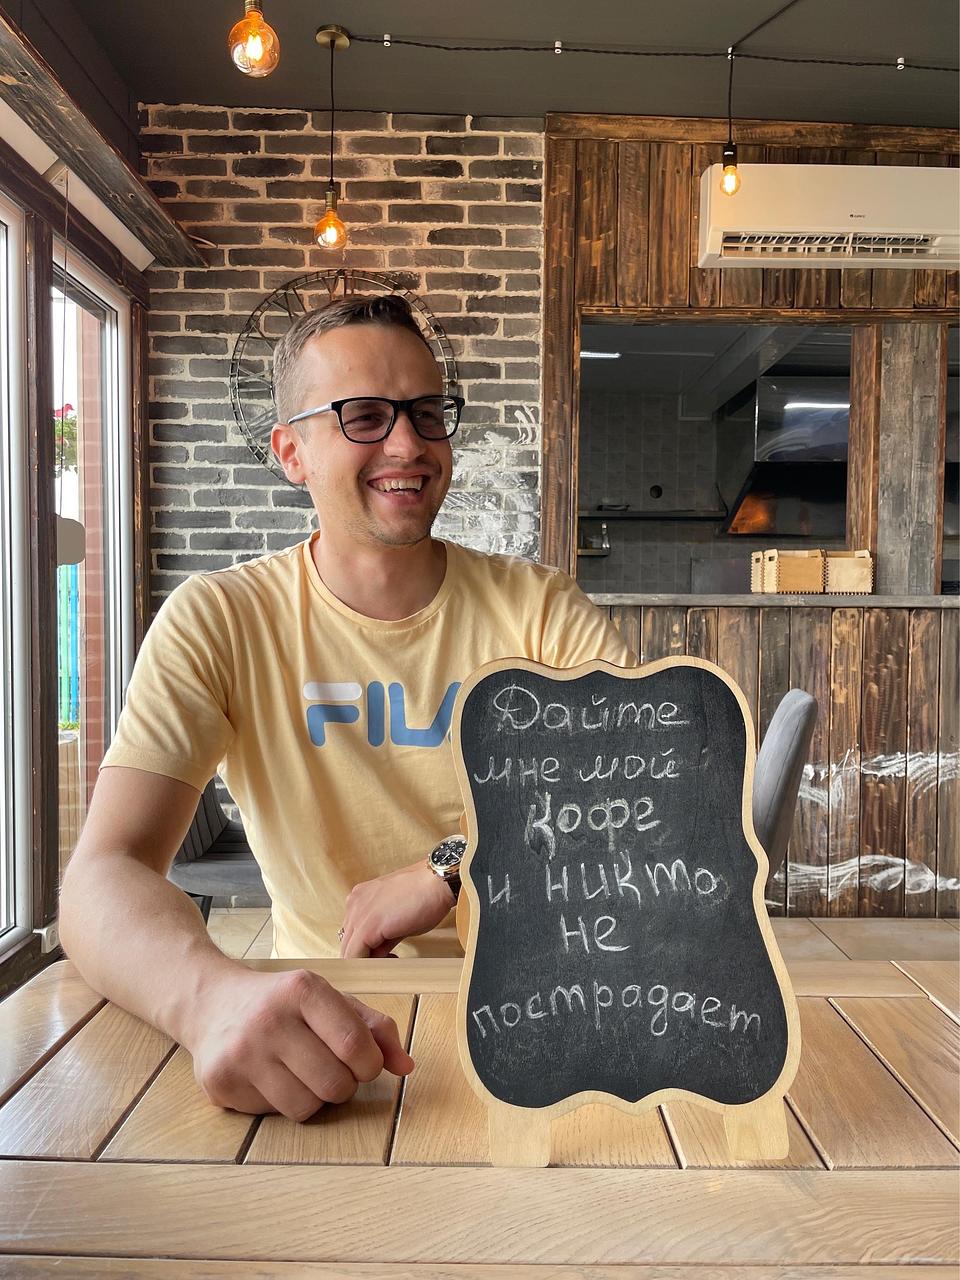 FILA
Дайте
мне мой
кофе
и никто
не
пострадает